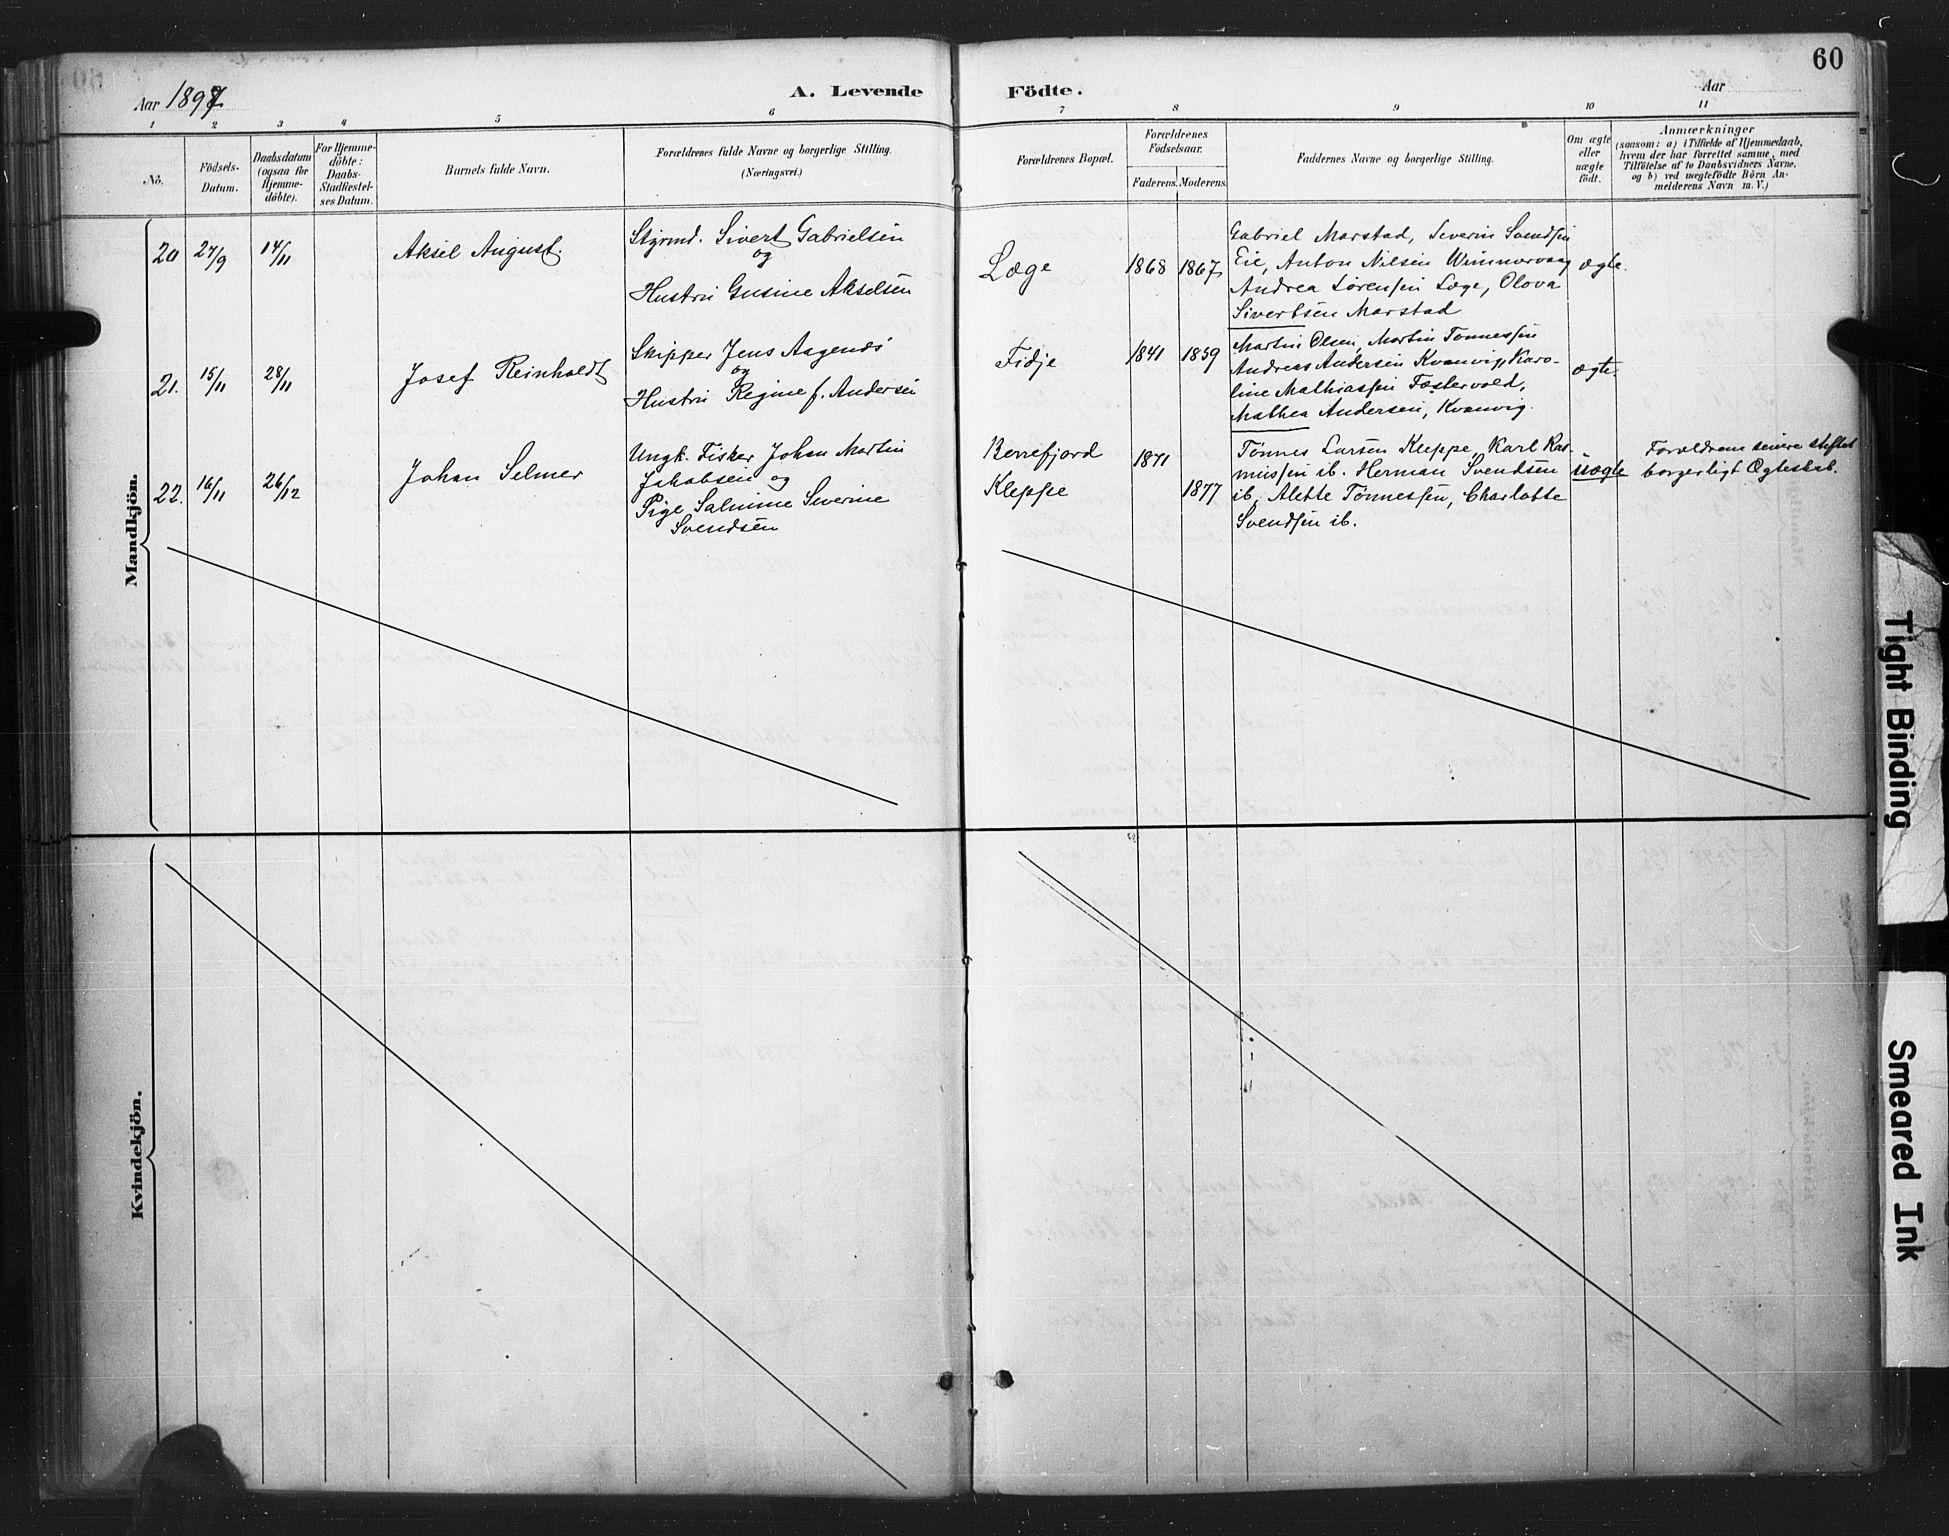 60
Aar 1897
A. Levende Födte.
Aar
1 2 3 4 5 6 7 8 9 10 11
No.
Födsels-
Datum.
Daabsdatum
(ogsaa for
Hjemme-
döbte).
For Hjemme-
döbte:
Daabs-
Stadfæstel-
ses Datum.
Barnets fulde Navn.
Forældrenes fulde Navne og borgerlige Stilling.
(Næringsvei.)
Forældrenes Bopæl.
Forældrenes
Födselsaar.
Faderens. Moderens.
Faddernes Navne og borgerlige Stilling.
Om ægte
eller
uægte
födt.
Anmærkninger
(saasom: a) i Tilfælde af Hjemmedaab,
hvem der har forrettet samme, med
Tilföielse af to Daabsvidners Navne,
og b) ved uægtefödte Börn An-
melderens Navn m. V.)
Mandkjön.
20 27/9 14/11
Aksel August
Styrmd. Sivert Gabrielsen
og
Hustru Gusine Akselsen
Læge
1868 1867
Gabriel Marstad, Severin Svendsen
Eie, Anton Nilsen
Andrea Sörensen Læge, Olova
Sivertsen Marstad
ægte.
21. 15/11 28/11
Josef Reinholdt
Skipper Jens Aagenæs
og
Hustru Regine f. Andersen
Fidje
1841 1859
Martin Olsen, Martin Tønnessen
Andreas Andersen Kvanvig, Karo-
line Mathiassen Fæstervold,
Mathea Andersen, Kvanvig.
ægte.
22. 16/11 26/12
Johan Selmer
Ungk. Fisker Johan Martin
Jakobsen og
Pige Salmine Severine
Svendsen
Berrefjord
Kleppe
1871
1877
Tønnes Larsen Kleppe, Karl Ras-
mussen ib. Herman Svendsen
ib, Alette Tønnessen, Charlotte
Svendsen ib.
uægte
Forældrene senere stiftet
borgerligt Ægteskab.
Kvindekjön.
Tight Binding
Smeared Ink